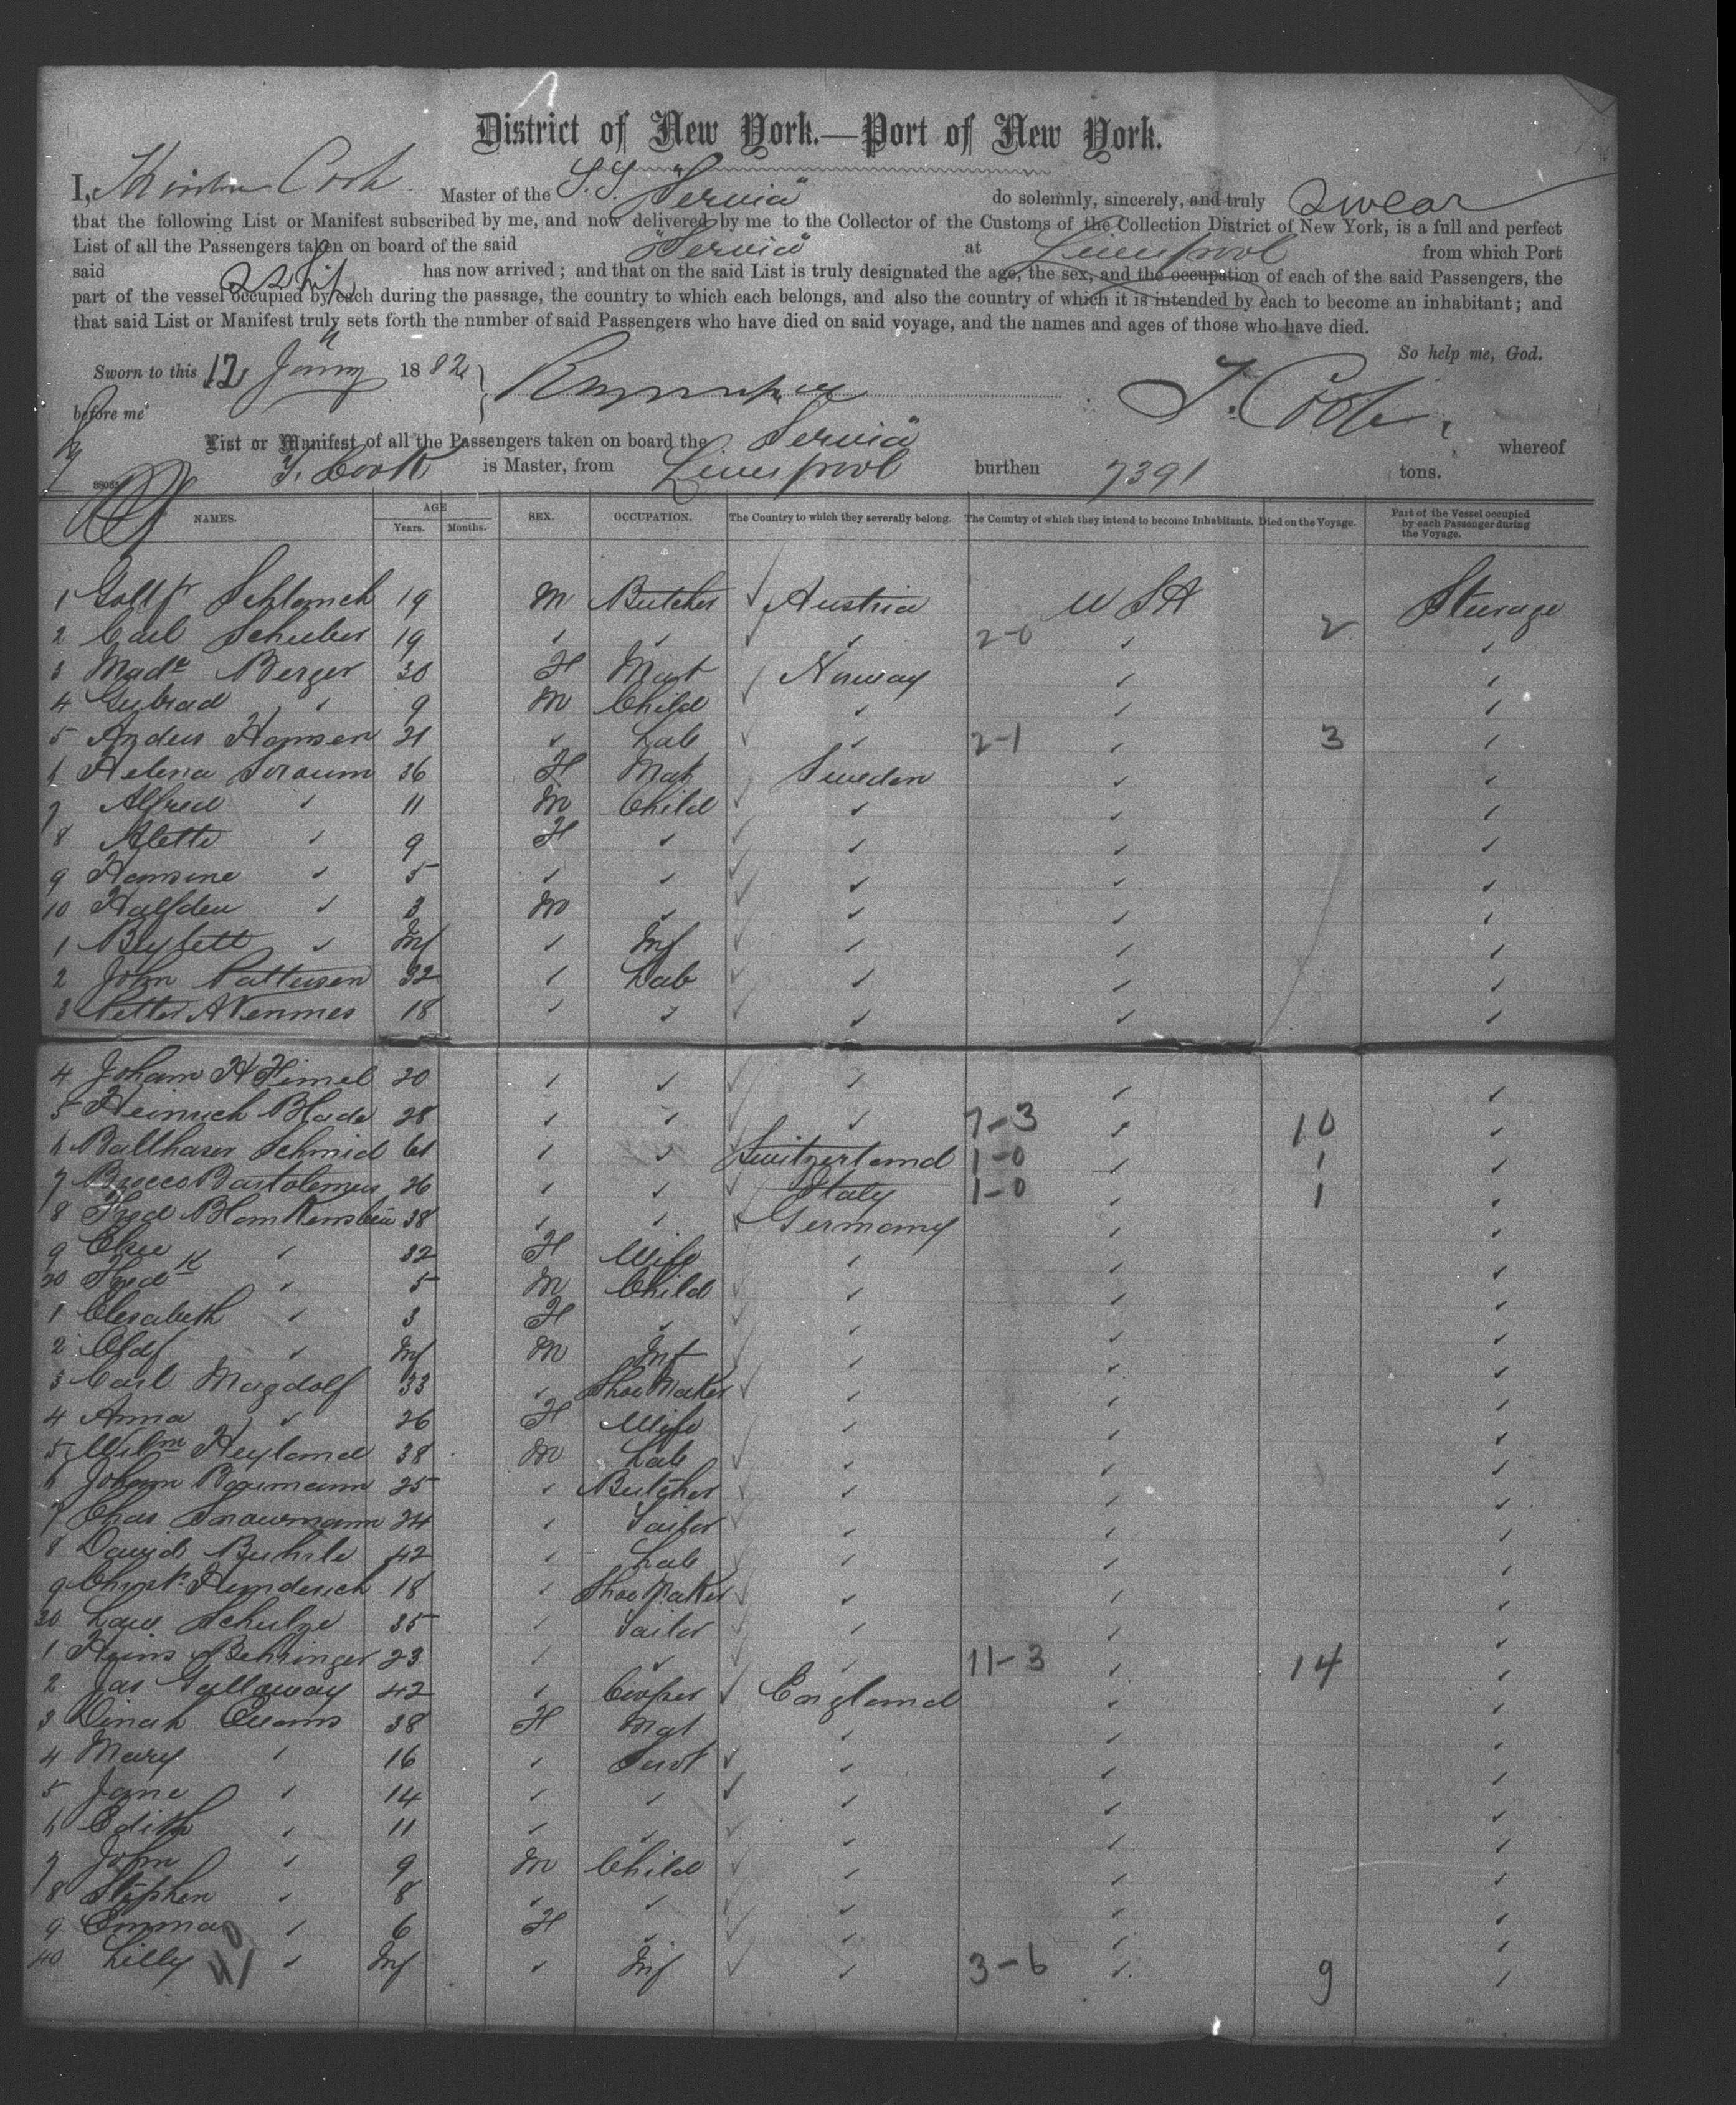 District of New York.—Port of New York.
I, Theodore Cook Master of the S.S. "Servia" do solemnly, sincerely, and truly swear
that the following List or Manifest subscribed by me, and now delivered by me to the Collector of the Customs of the Collection District of New York, is a full and perfect
List of all the Passengers taken on board of the said "Servia" at Liverpool from which Port
said ship has now arrived; and that on the said List is truly designated the age, the sex, and the occupation of each of the said Passengers, the
part of the vessel occupied by each during the passage, the country to which each belongs, and also the country of which it is intended by each to become an inhabitant; and
that said List or Manifest truly sets forth the number of said Passengers who have died on said voyage, and the names and ages of those who have died.
So help me, God.
Sworn to this 12 Jany 1882
before me T. Cook
List or Manifest of all the Passengers taken on board the Servia whereof
T. Cook is Master, from Liverpool burthen 7391 tons.
NAMES. AGE Years. Months. SEX. OCCUPATION. The Country to which they severally belong. The Country of which they intend to become Inhabitants. Died on the Voyage. Part of the Vessel occupied by each Passenger during the Voyage.
1 19 M Butcher Austria USA Steerage
2 Carl Schuber 19 2-0 2
3 Berger 30 F Mat Norway
4 9 M Child
5 Anders Hansen 21 Lab 2-1 3
6 Helena 36 F Mat Sweden
7 Alfred 11 M Child
8 Alette 9 F
9 Hansine 5
10 Halfden 3 M
1 Inf Inf
2 John Pattersen 32 Lab
3 Petter 18
4 Johann H Himel 20
5 Heinrich Blade 28 7-3 10
6 Balthaser Schmid 61 Switzerland 1-0 1
7 Brocco Bartolemeus 26 Italy 1-0 1
8 Fred Blankenstein 38 Germany
9 Elise 32 F Wife
20 Fredk 5 M Child
1 Elesabeth 3 F
2 Inf M Inf
3 Carl Magdolf 33 Shoe Maker
4 Anna 26 F Wife
5 Willm Heyland 38 M Lab
6 Johann Baumann 25 Butcher
7 Chas 24 Tailor
8 David Buhrle 42 Lab
9 18 Shoe Maker
30 Schulze 35 Tailor
1 Heins Behringer 23 11-3 14
2 Jas Gallaway 42 Cooper England
3 Dinah Evans 38 F Mat
4 Mary 16 Servt
5 Jane 14
6 Edith 11
7 John 9 M Child
8 Stephen 8
9 Emma 6 F
40 Lilly Inf Inf 3-6 9